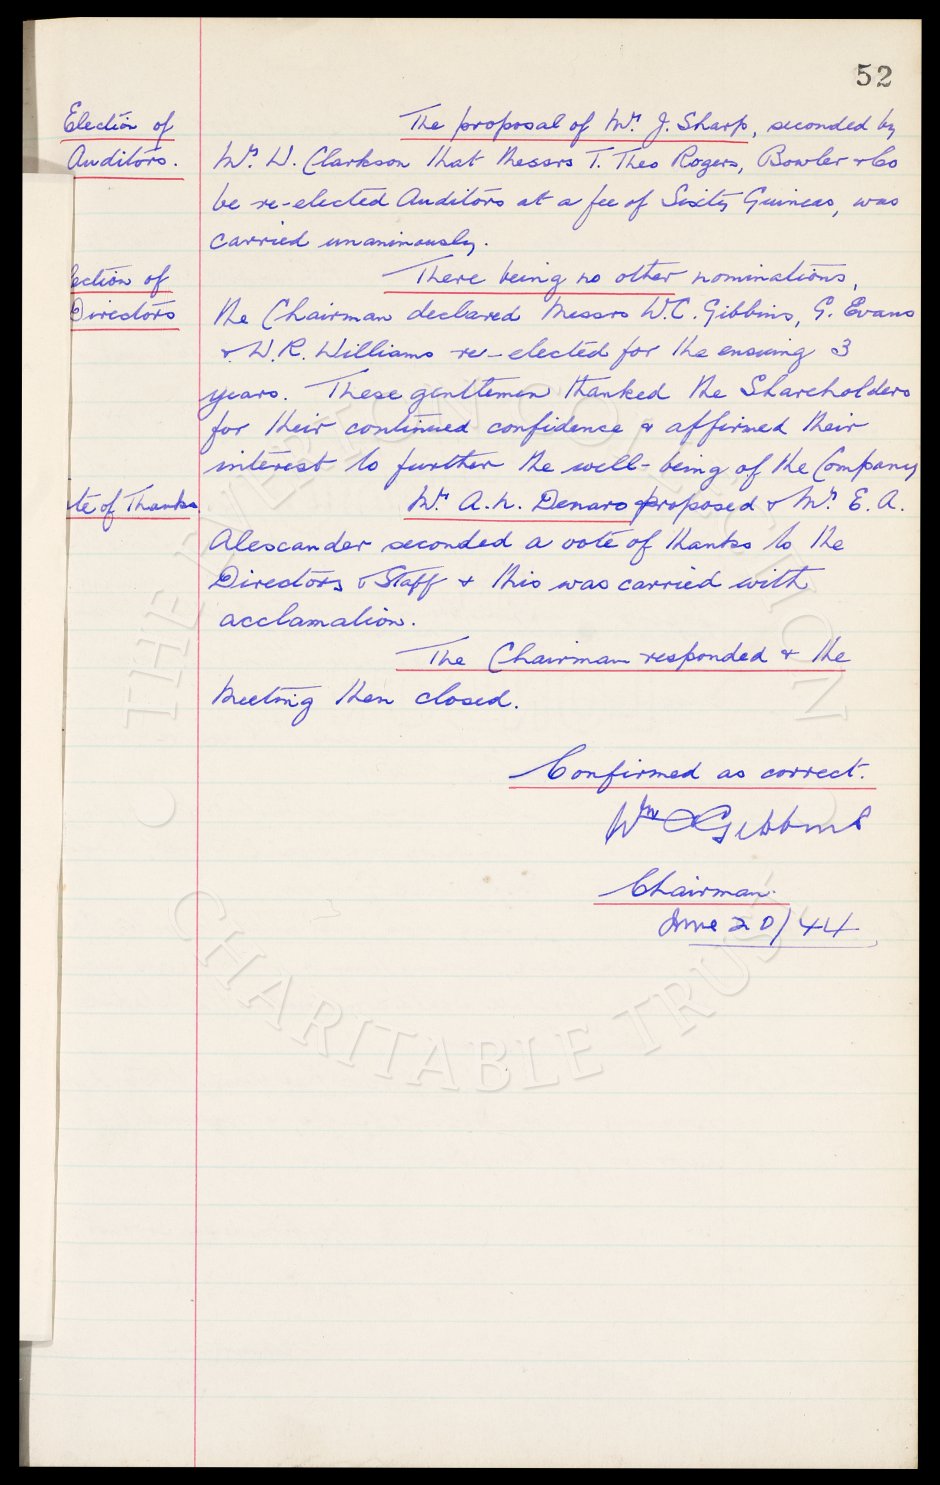 52
Election of
Auditors.
The proposal of Mr. J. Sharp, seconded by
Mr. W. Clarkson that Messrs T. Theo Rogers, Bowler & Co
be re-elected Auditors at a fee of Sixty Guineas, was
carried unanimously.
ection of
Directors
There being no other nominations,
the Chairman declared Messrs W.C. Gibbins, G. Evans
& W.R. Williams re-elected for the ensuing 3
years. These gentlemen thanked the Shareholders
for their continued confidence & affirmed their
interest to further the well-being of the Company
te of Thanks
Mr. A.N. Denaro proposed & Mr. E. A.
Alexcander seconded a vote of thanks to the
Directors & Staff & this was carried with
acclamation.
The Chairman responded & the
Meeting then closed.
Confirmed as correct.
Wm C Gibbins
Chairman.
June 20/44
THE EVERTON COLLECTION
CHARITABLE TRUST